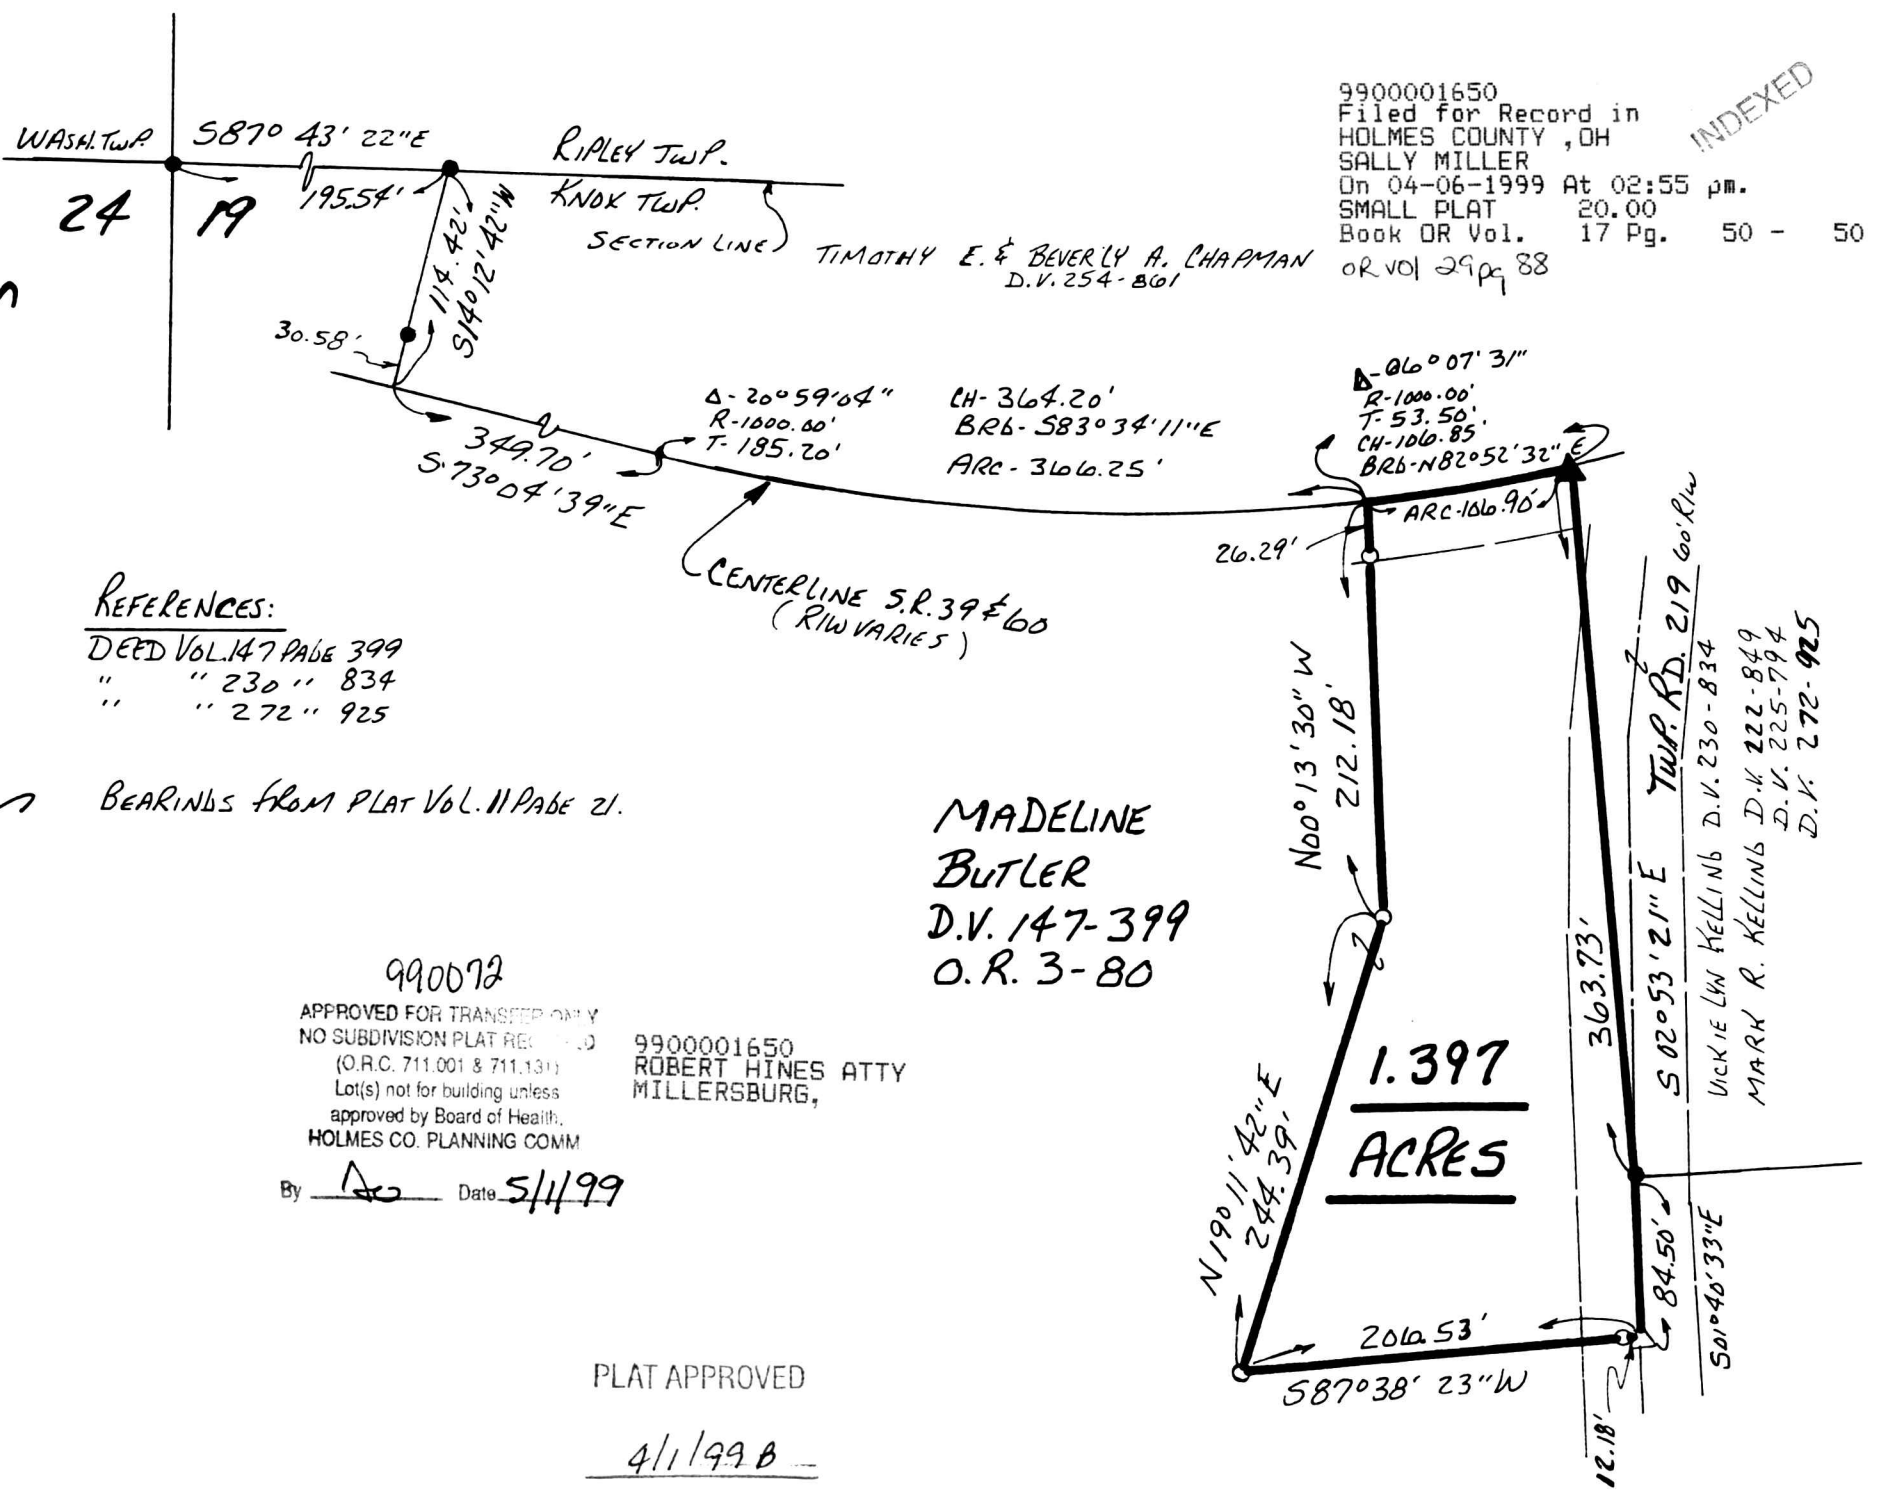 WASH. TWP.
S87° 43' 22"E
RIPLEY TWP.
195.54'
KNOX TWP.
24
19
SECTION LINE
114.42'
S14°12'42"W
30.58'
TIMOTHY E. & BEVERLY A. CHAPMAN
D.V. 254-861
9900001650
Filed for Record in
HOLMES COUNTY ,OH
SALLY MILLER
On 04-06-1999 At 02:55 pm.
SMALL PLAT 20.00
Book OR Vol. 17 Pg. 50 - 50
OR Vol 29 pg 88
INDEXED
349.70'
S.73°04'39"E
Δ-20°59'04"
R-1000.00'
T-185.20'
CH-364.20'
BRG-S83°34'11"E
ARC-366.25'
Δ-06°07'31"
R-1000.00'
T-53.50'
CH-106.85'
BRG-N82°52'32"E
ARC-106.90'
26.29'
CENTERLINE S.R. 39 & 60
(R/W VARIES)
REFERENCES:
DEED VOL. 147 PAGE 399
" " 230 " 834
" " 272 " 925
BEARINGS FROM PLAT VOL. 11 PAGE 21.
N00°13'30"W
212.18'
MADELINE
BUTLER
D.V. 147-399
O.R. 3-80
TWP. RD. 219 60' R/W
VICKIE LYN KELLING D.V. 230-834
MARK R. KELLING D.V. 222-849
D.V. 225-794
D.V. 272-925
363.73'
S 02°53'21"E
1.397
ACRES
N19°11'42"E
244.39'
84.50'
S01°40'33"E
206.53'
S87°38' 23"W
12.18'
990072
APPROVED FOR TRANSFER ONLY
NO SUBDIVISION PLAT
(O.R.C. 711.001 & 711.131)
Lot(s) not for building unless
approved by Board of Health.
HOLMES CO. PLANNING COMM
By Date 5/1/99
9900001650
ROBERT HINES ATTY
MILLERSBURG,
PLAT APPROVED
4/1/99 B